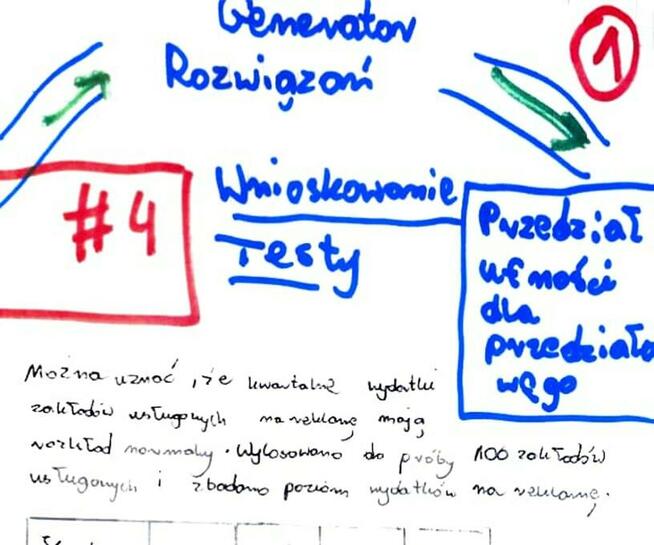 Generator
Rozwiązań
1
#4
Wnioskowanie
Testy
Przedział
ufności
dla
przedziało
wego
Można uznać, że kwartalne wydatki
zakładów usługowych na reklamę mają
rozkład normalny. Wylosowano do próby 100 zakładów
usługowych i zbadano poziom wydatków na reklamę.